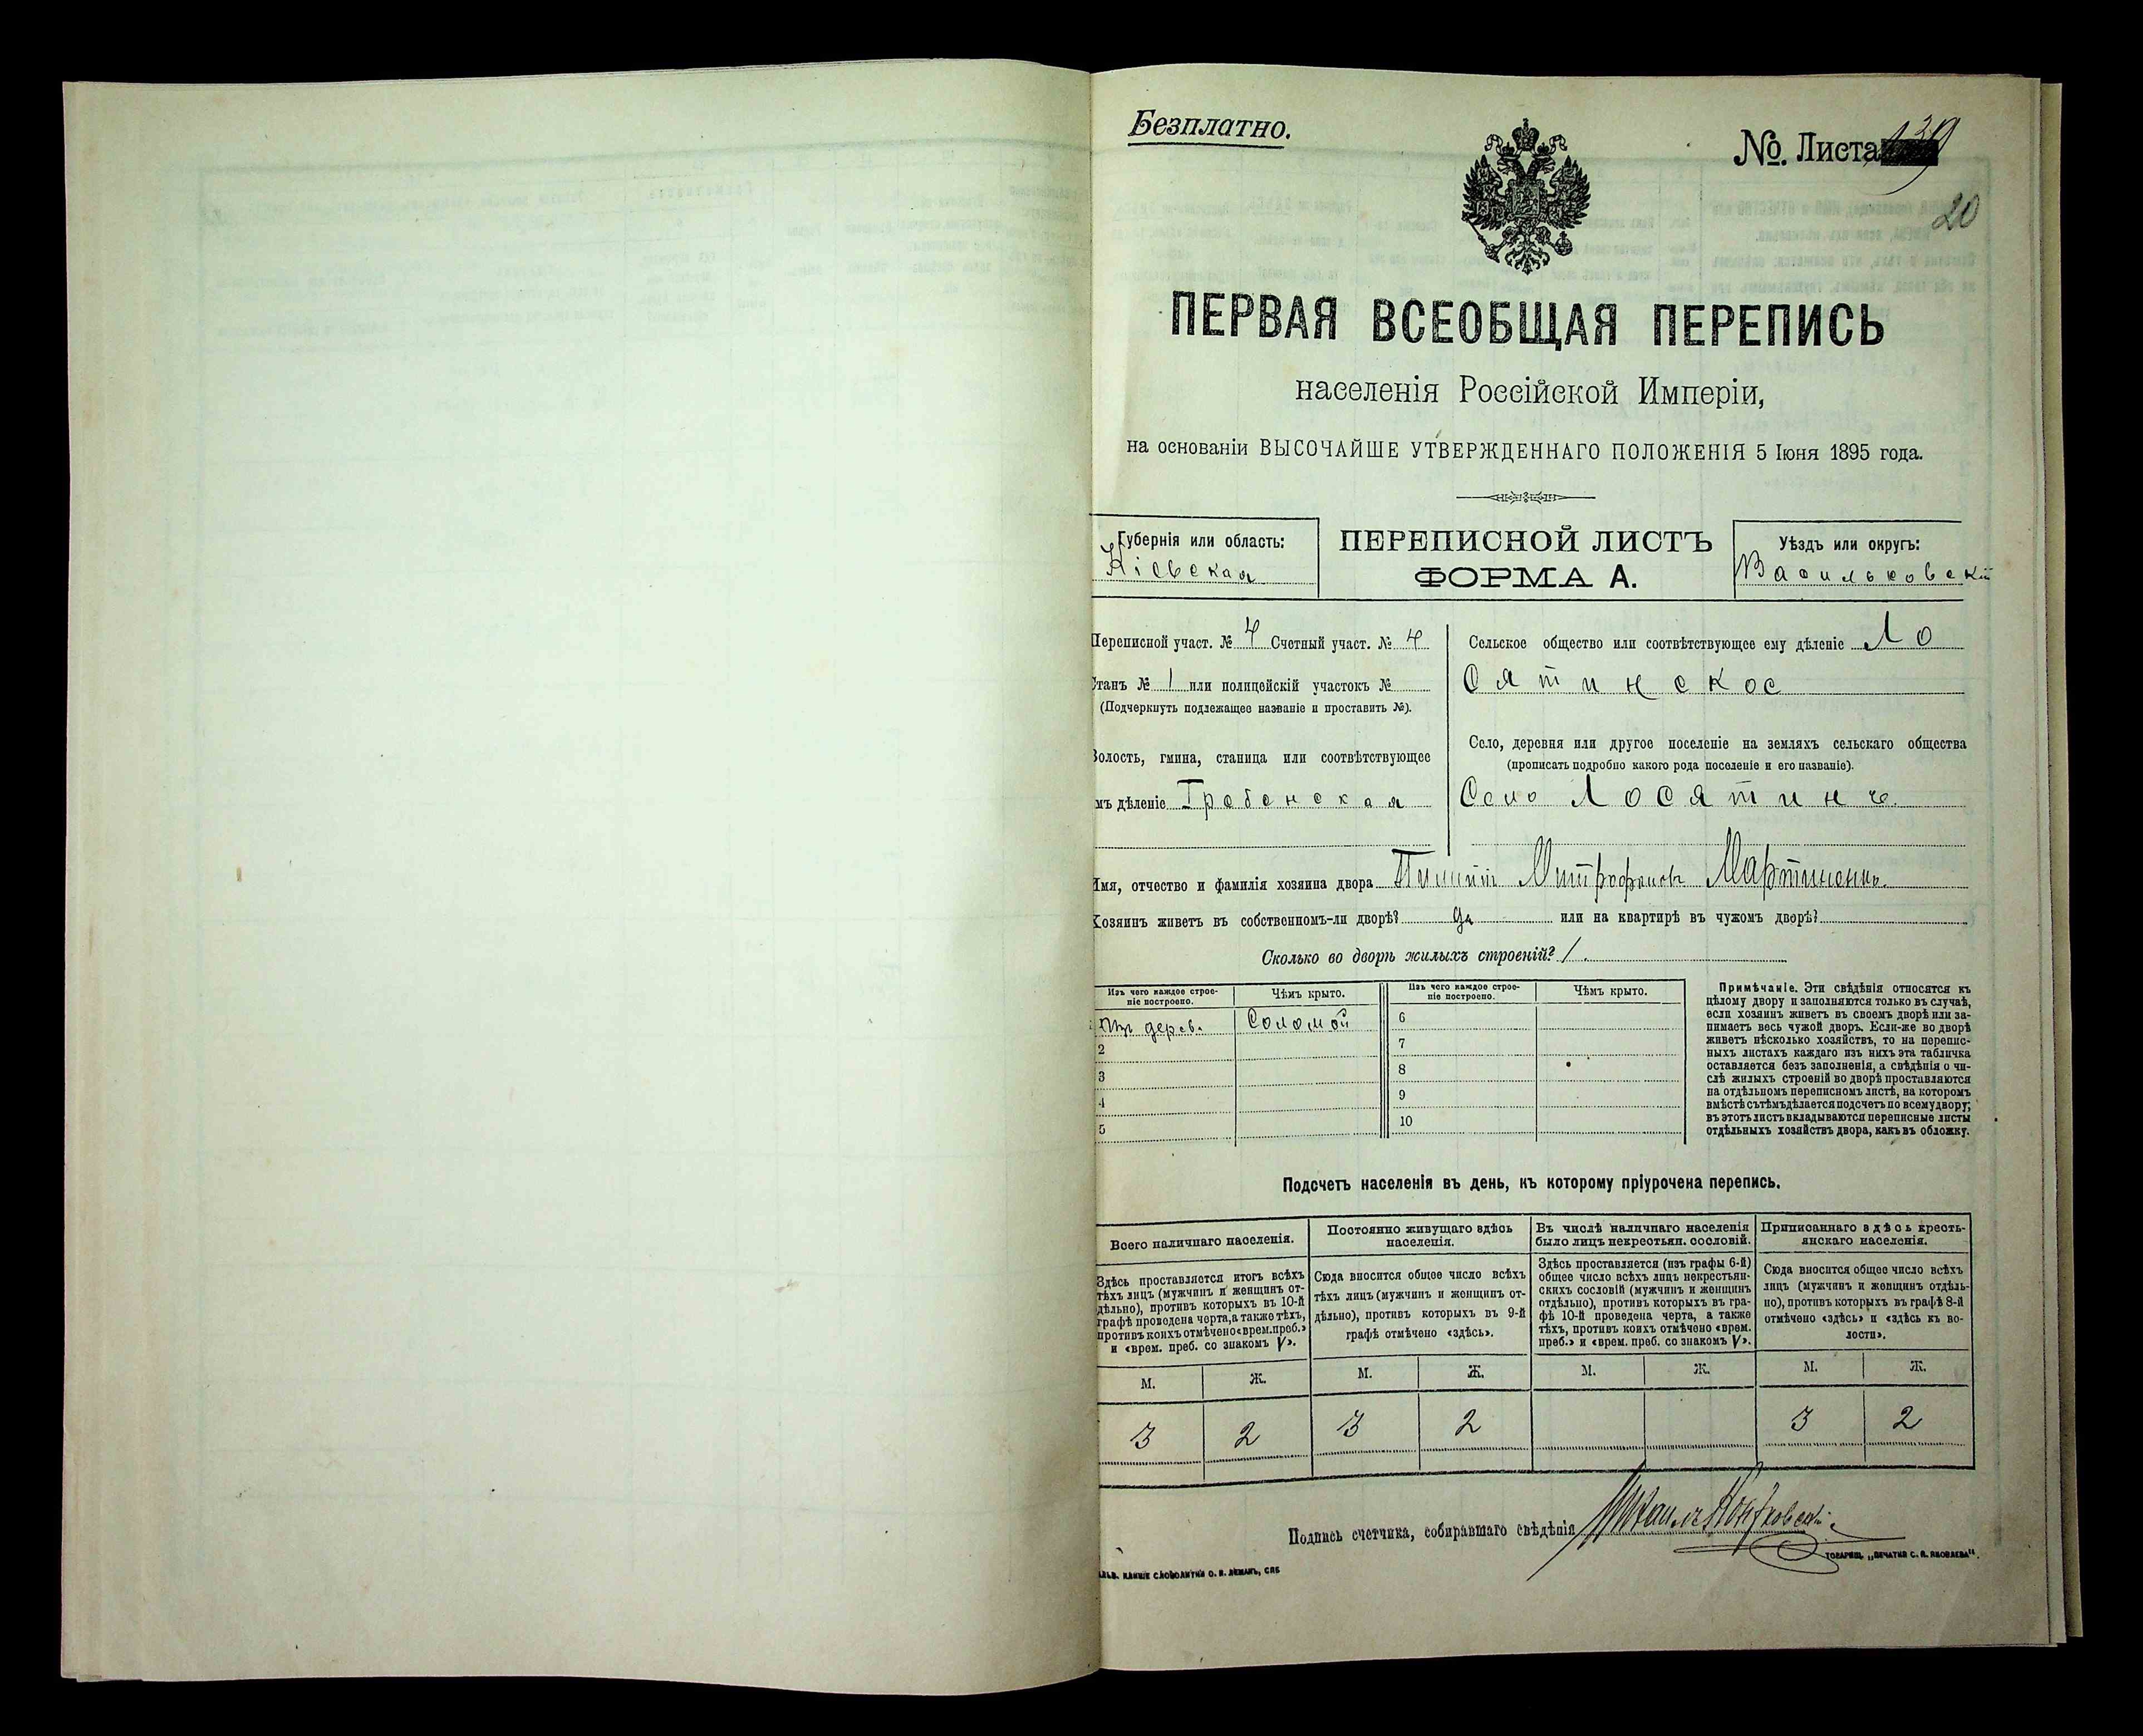 Безплатно.
№. Листа 139
20
ПЕРВАЯ ВСЕОБЩАЯ ПЕРЕПИСЬ
населенія Россійской Имперіи,
на основаніи ВЫСОЧАЙШЕ УТВЕРЖДЕННАГО ПОЛОЖЕНІЯ 5 Іюня 1895 года.
Губернія или область:
Кіевская
ПЕРЕПИСНОЙ ЛИСТЪ
ФОРМА А.
Уѣздъ или округъ:
Васильковскій
Переписной участ. № 4 Счетный участ. № 4
Станъ № 1 или полицейскій участокъ №
(Подчеркнуть подлежащее названіе и проставить №).
Волость, гмина, станица или соотвѣтствующее
имъ дѣленіе Гребенская
Сельское общество или соотвѣтствующее ему дѣленіе Ло
сятинское
Село, деревня или другое поселеніе на земляхъ сельскаго общества
(прописать подробно какого рода поселеніе и его названіе).
Село Лосятинъ
Имя, отчество и фамилія хозяина двора Митрофановъ Мартиненко
Хозяинъ живетъ въ собственномъ-ли дворѣ? да или на квартирѣ въ чужомъ дворѣ?
Сколько во дворѣ жилыхъ строеній? 1
Изъ чего каждое строе-
ніе построено.
Чѣмъ крыто.
Изъ чего каждое строе-
ніе построено.
Чѣмъ крыто.
дерев. Соломой
2
3
4
5
6
7
8
9
10
Примѣчаніе. Эти свѣдѣнія относятся къ
цѣлому двору и заполняются только въ случаѣ,
если хозяинъ живетъ въ своемъ дворѣ или за-
нимаетъ весь чужой дворъ. Если-же во дворѣ
живетъ нѣсколько хозяйствъ, то на перепис-
ныхъ листахъ каждаго изъ нихъ эта табличка
оставляется безъ заполненія, а свѣдѣнія о чи-
слѣ жилыхъ строеній во дворѣ проставляются
на отдѣльномъ переписномъ листѣ, на которомъ
вмѣстѣ съ тѣмъ дѣлается подсчетъ по всему двору;
въ этотъ листъ вкладываются переписные листы
отдѣльныхъ хозяйствъ двора, какъ въ обложку.
Подсчетъ населенія въ день, къ которому пріурочена перепись.
Всего наличнаго населенія.
Здѣсь проставляется итогъ всѣхъ
тѣхъ лицъ (мужчинъ и женщинъ от-
дѣльно), противъ которыхъ въ 10-й
графѣ проведена черта, а также тѣхъ,
противъ коихъ отмѣчено «врем. преб.»
и «врем. преб. со знакомъ V».
М. Ж.
3 2
Постоянно живущаго здѣсь
населенія.
Сюда вносится общее число всѣхъ
тѣхъ лицъ (мужчинъ и женщинъ от-
дѣльно), противъ которыхъ въ 9-й
графѣ отмѣчено «здѣсь».
М. Ж.
3 2
Въ числѣ наличнаго населенія
было лицъ некрестьян. сословій.
Здѣсь проставляется (изъ графы 6-й)
общее число всѣхъ лицъ некрестьян-
скихъ сословій (мужчинъ и женщинъ
отдѣльно), противъ которыхъ въ гра-
фѣ 10-й проведена черта, а также
тѣхъ, противъ коихъ отмѣчено «врем.
преб.» и «врем. преб. со знакомъ V».
М. Ж.
Приписаннаго здѣсь кресть-
янскаго населенія.
Сюда вносится общее число всѣхъ
лицъ (мужчинъ и женщинъ отдѣль-
но), противъ которыхъ въ графѣ 8-й
отмѣчено «здѣсь» и «здѣсь къ во-
лости».
М. Ж.
3 2
Подпись счетчика, собиравшаго свѣдѣнія Михаилъ
СЛОВОЛИТНИ О. И. ЛЕМАНЪ, СПБ
ТОВАРИЩ. „ПЕЧАТНЯ С. П. ЯКОВЛЕВА“.